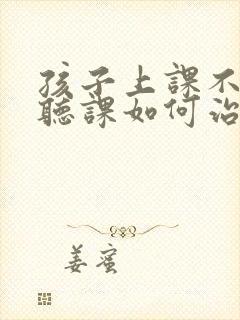 孩子上課不
聽課如何治
姜蜜